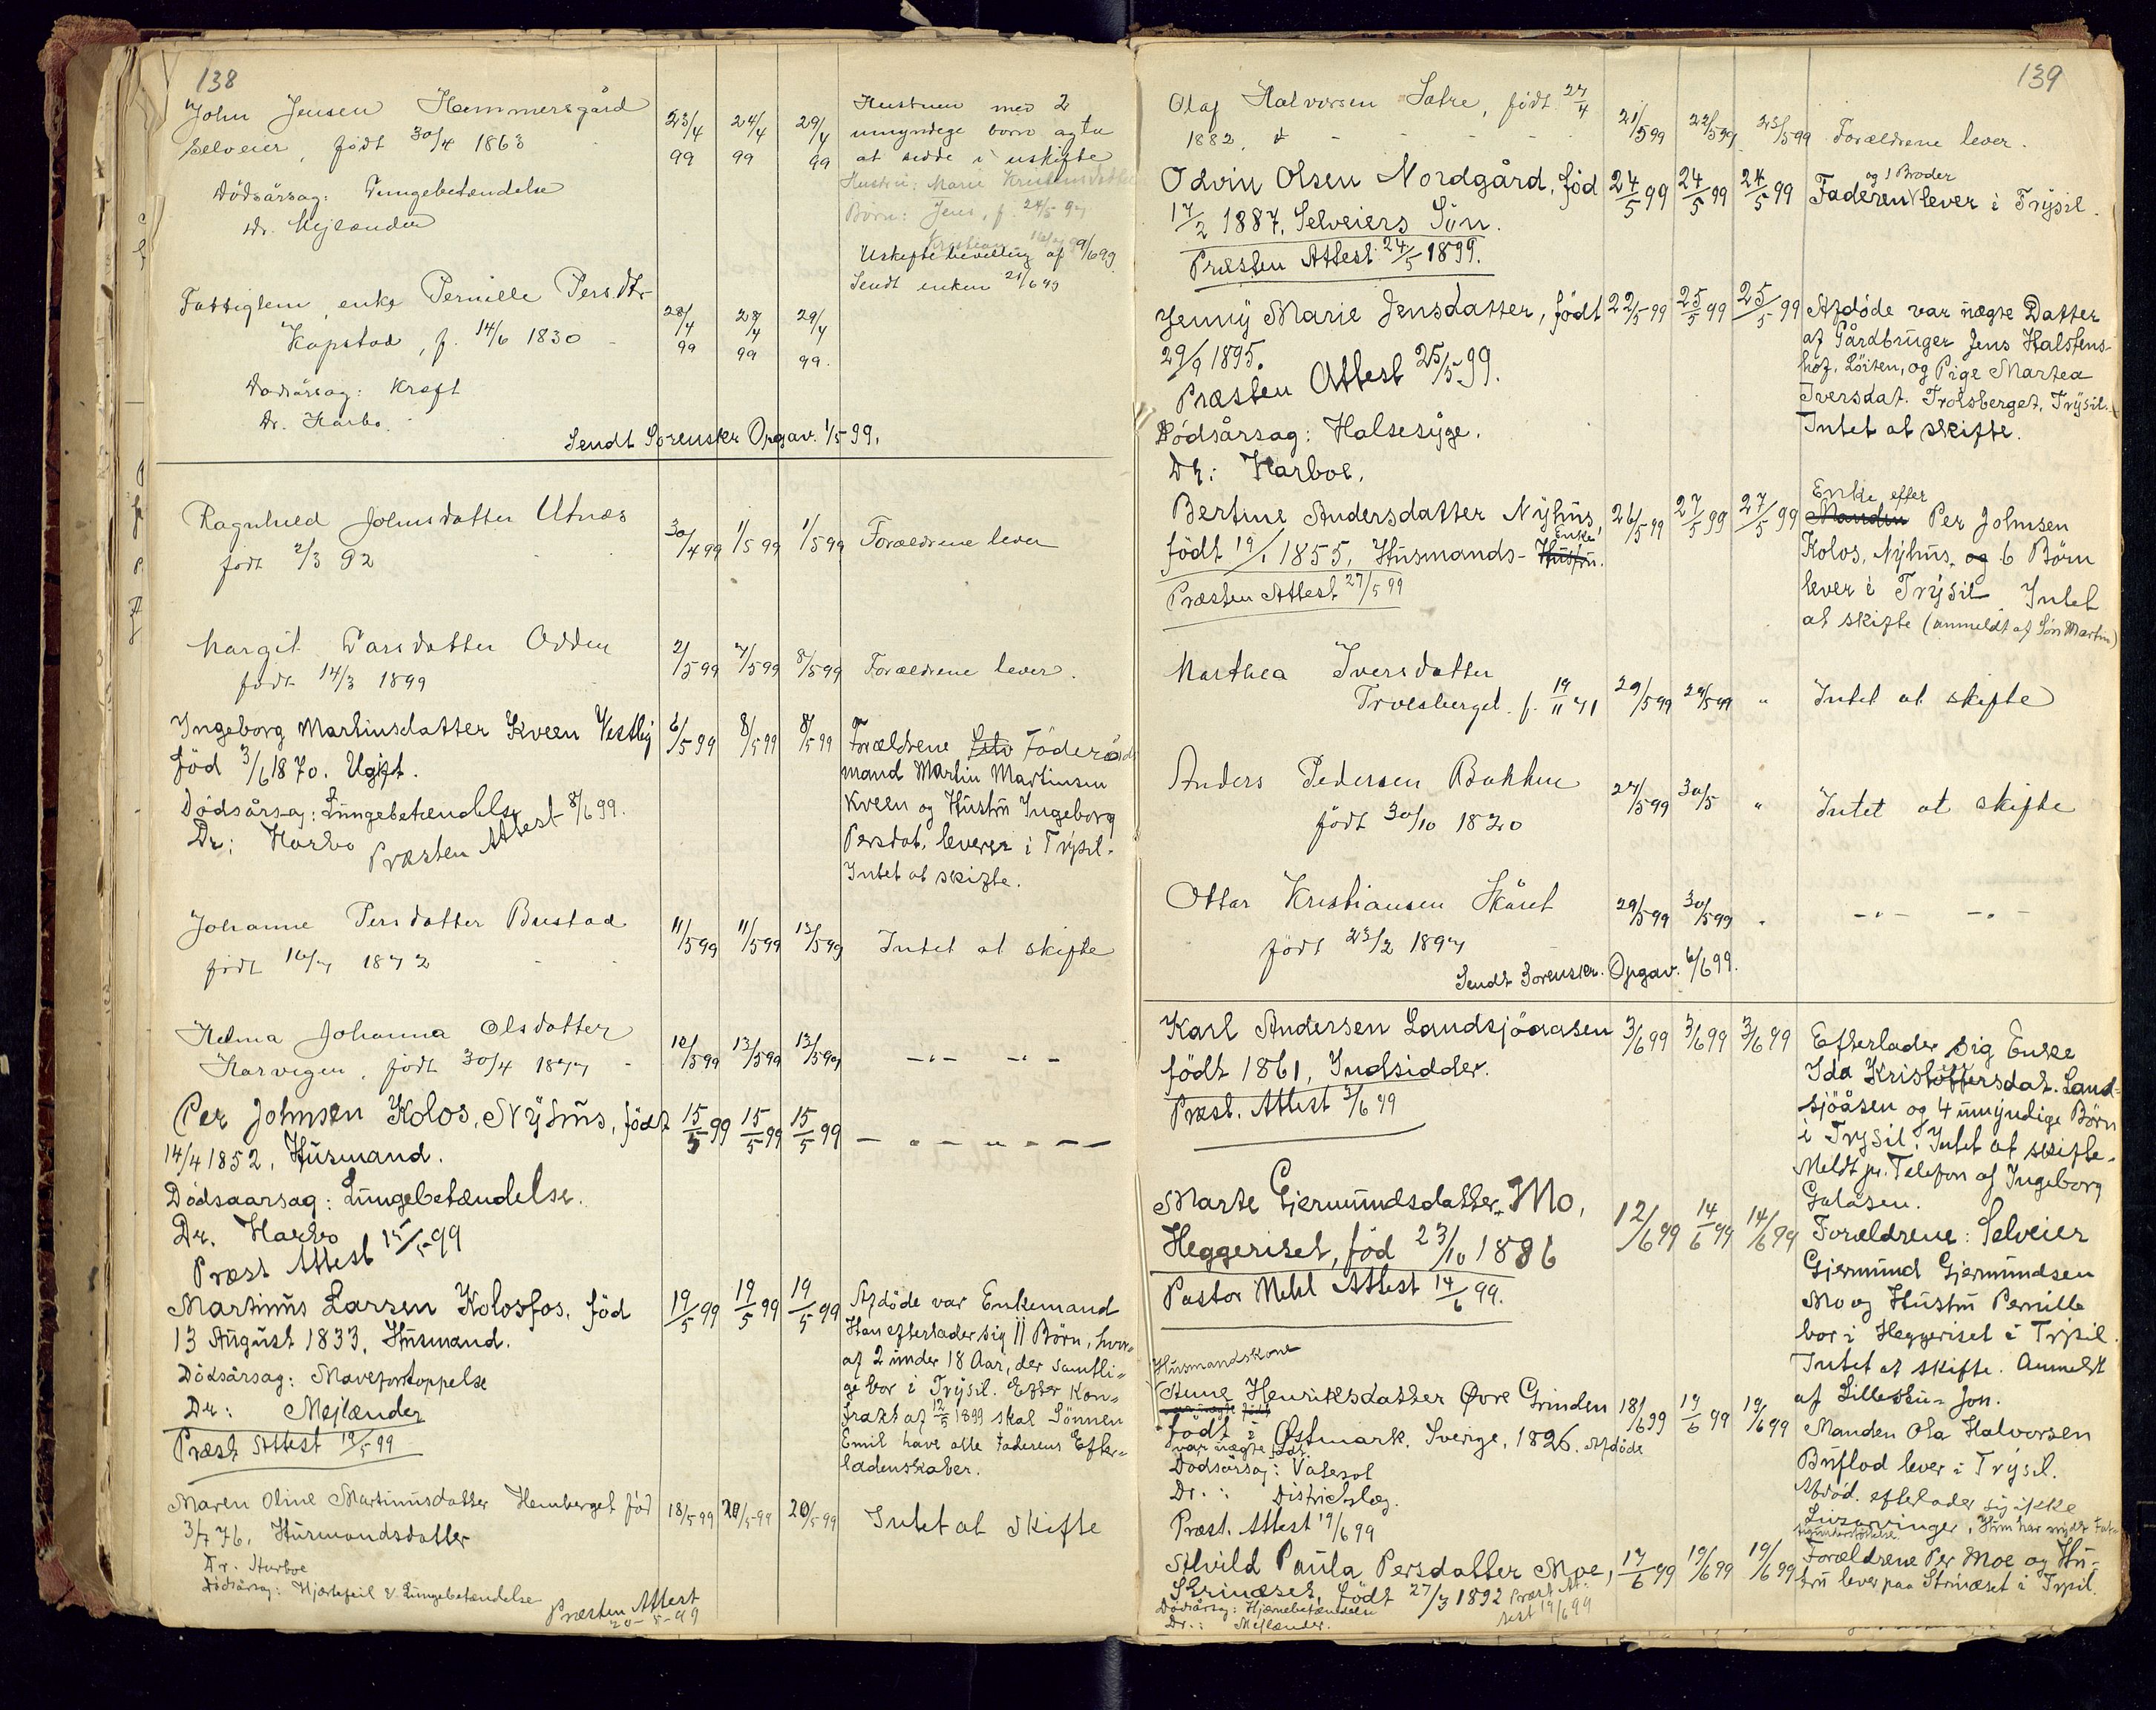 138
John Jensen Hammersgård
Selveier, født 30/4 1863 23/4 99 24/4 99 29/4 99
Hustruen med 2
umyndige born agter
at sidde i uskifte
Hustru: Marie Kristensdatter
Børn: Jens, f. 24/5 97
Kristian
Dödsårsag: Lungebetændelse
Dr. Mejlænder
Uskiftebevilling af 9/6 99
Sendt enken 21/6 99
Fattiglem, enke Pernille Persdtr
Kopstad, f. 14/6 1830 28/4 99 28/4 99 29/4 99.
Dødsårsag: Kræft
Dr. Harbo.
Sendt Sorenskr Opgav. 1/5 99.
Ragnhild Johnsdatter Utnæs
født 2/3 92 30/4 99 1/5 99 1/5 99 Forældrene lever
Margit Larsdatter Odden
født 14/3 1899 2/5 99 7/5 99 8/5 99 Forældrene lever.
Ingeborg Martinsdatter Kveen Vestby 6/5 99 8/5 99 8/5 99
född 3/6 1870. Ugift.
Dödsårsag: Lungebetændelse
Dr: Harbo Præsten Attest 8/6 99.
Forældrene Föderåds
mand Martin Martinsen
Kveen og Hustru Ingeborg
Persdat. leverer i Trysil.
Intet at skifte.
Johanne Persdatter Bustad
født 16/7 1872 11/5 99 11/5 99 13/5 99 Intet at skifte
Helma Johanna Olsdatter
Harvigen, født 30/4 1877 10/5 99 13/5 99 13/5 99 — " — — " —
Per Johnsen Kolos, Nyhus, födt 15/5 99 15/5 99 15/5 99 — " — " — " —
14/4 1852, Husmand.
Dödsaarsag: Lungebetændelse.
Dr. Harbo
Præst Attest 15/5 99
Martinus Larsen Kolosfos, föd 19/5 99 19/5 99 19/5 99
13 August 1833, Husmand.
Dödsårsag: Maveforstoppelse
Dr: Mejlænder
Præst Attest 19/5 99
Afdöde var Enkemand
Han efterlader sig 11 Börn, hvor-
af 2 under 18 Aar, der samtli-
ge bor i Trysil. Efter Kon-
trakt af 12/5 1899 skal Sönnen
Emil have alle Faderens Efter-
ladenskaber.
Maren Oline Martinusdatter Hemberget föd 18/5 99 20/5 99 20/5 99 Intet at skifte
3/7 76, Husmandsdatter
Dr. Harboe
Dödsårsag: Hjertefeil & Lungebetændelse
Præsten Attest
20-5-99
139
Olaf Halvorsen Sætre, født 27/4
1882, 21/5 99 22/5 99 23/5 99 Forældrene lever.
Odvin Olsen Nordgård, föd 24/5 99 24/5 99 24/5 99
17/2 1887, Selveiers Sön.
Præsten Attest 24/5 1899.
og 1 Broder
Faderen lever i Trysil.
Jenny Marie Jensdatter, født 22/5 99 25/5 99 25/5 99
29/9 1895.
Præsten Attest 25/5 99.
Dödsårsag: Halsesyge.
Dr: Harboe.
Afdöde var uægte Datter
af Gårdbruger Jens Halstens-
hof, Löiten, og Pige Martea
Iversdat. Trolsberget, Trysil.
Intet at skifte.
Bertine Andersdatter Nyhus, 26/5 99 27/5 99 27/5 99
Enke
født 19/1 1855, Husmands- Hustru.
Præsten Attest 27/5 99
Enke efter
Manden Per Johnsen
Kolos, Nyhus, og 6 Börn
lever i Trysil Intet
at skifte (anmeldt af Sön Martin)
Marthea Iversdatter
Troesberget. f. 19/11 71 29/5 99 29/5 99 " Intet at skifte
Anders Pedersen Bakken
født 30/10 1820 27/5 99 30/5 " Intet at skifte
Ottar Kristiansen Skåret
født 23/2 1897 29/5 99 30/5 99 " — " — — " —
Sendt Sorenskr. Opgav. 6/6 99.
Karl Andersen Landsjöaasen 3/6 99 3/6 99 3/6 99
født 1861, Indsidder.
Præst. Attest 3/6 99
Efterlader sig Enke
Ida Kristoffersdat. Land-
sjöåsen og 4 umyndige Börn
i Trysil. Intet at skifte.
Meldt pr. Telefon af Ingeborg
Galåsen.
Marte Gjermundsdatter Mo, 12/6 99 14/6 99 14/6 99
Heggeriset, föd 23/10 1886
Pastor Mehl Attest 14/6 99.
Forældrene: Selveier
Gjermund Gjermundsen
Mo og Hustru Pernille
bor i Heggeriset i Trysil.
Intet at skifte. Anmeldt
af Lillestu-Jon.
Husmandskone
Anne Henriksdatter Øvre Grinden 18/6 99 19/6 99 19/6 99
født i Östmark, Sverige, 1826. Afdöde
var uægte född
Dödsårsag: Vatersot
Dr.: Distriktslæg.
Præst. Attest 19/6 99
Manden Ola Halvorsen
Buflod lever i Trysil.
Afdöd. efterlader sig ikke
Livsarvinger, Hun har nydt Fat-
tigunderstöttelse
Alvild Paula Persdatter Moe, 17/6 99 19/6 99 19/6 99
Strinæset, födt 27/3 1892 Præst At-
test 19/6 99
Dödsårsag: Hjernebetændelse
Dr.: Mejlænder.
Forældrene Per Moe og Hu-
tru lever paa Strinæset i Trysil.